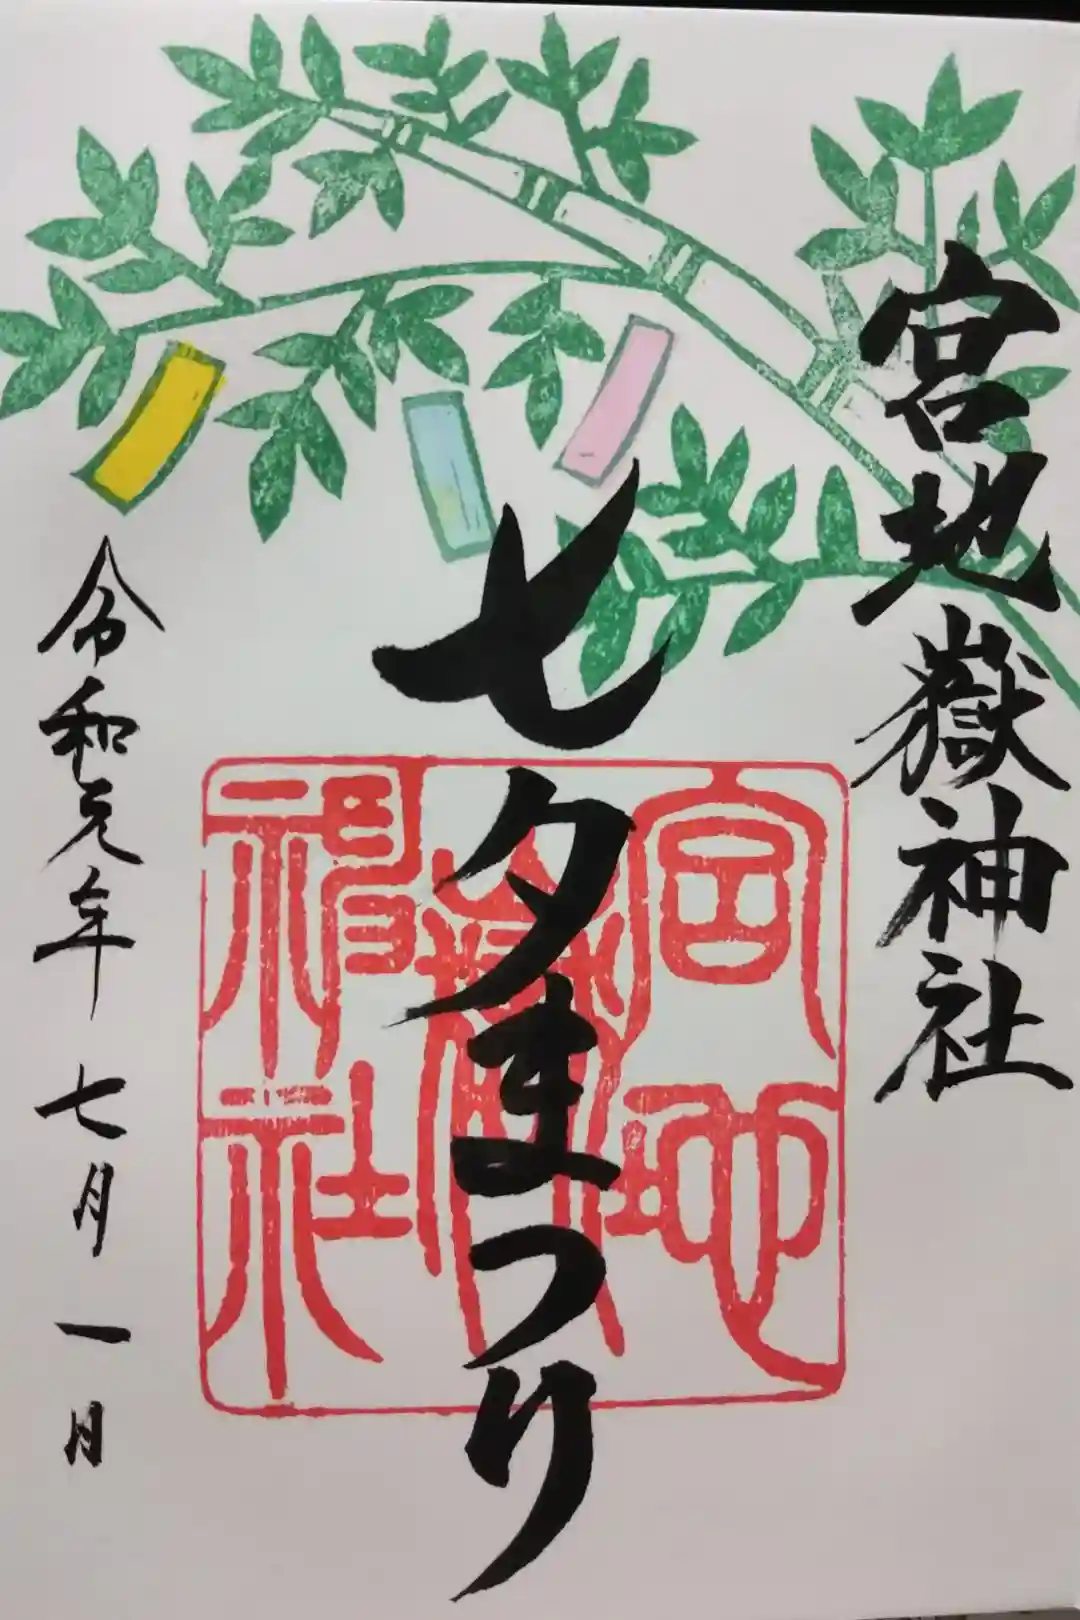 宮地嶽神社
七夕まつり
宮地
嶽
神社
令和元年 七月一日